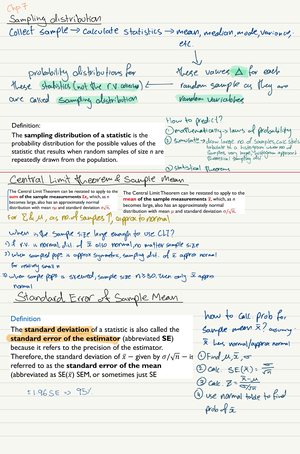 Chp 7
Sampling distribution
Collect sample → calculate statistics → mean, median, mode, variance,
etc.
probability distributions for
these statistics (not the r.v. anymore)
are called sampling distribution
these values Δ for each
random sample as they are
random variables
Definition:
The sampling distribution of a statistic is the
probability distribution for the possible values of the
statistic that results when random samples of size n are
repeatedly drawn from the population.
How to predict?
① mathematically: laws of probability
② simulate →
③ statistical theorems
Central Limit Theorem & Sample Mean
The Central Limit Theorem can be restated to apply to the
sum of the sample measurements Σxᵢ, which, as n
becomes large, also has an approximately normal
distribution with mean nμ and standard deviation σ√n.
The Central Limit Theorem can be restated to apply to the
mean of the sample measurements x̄, which, as n
becomes large, also has an approximately normal
distribution with mean μ and standard deviation σ/√n.
For Σ & μ, as no. of samples ↑, approx to normal
When is the sample size large enough to use CLT?
1) if r.v. is normal, dist. of x̄ also normal, no matter sample size
2) when sampled popn is approx symmetric, sampling dist. of x̄ approx normal
for relatively small n
3) when sample popn is skewed, sample size n≥30, then only x̄ approx
normal
Standard Error of Sample Mean
Definition
The standard deviation of a statistic is also called the
standard error of the estimator (abbreviated SE)
because it refers to the precision of the estimator.
Therefore, the standard deviation of x̄ – given by σ/√n – is
referred to as the standard error of the mean
(abbreviated as SE(x̄) SEM, or sometimes just SE
±1.96SE → 95%
how to calc. prob for
sample mean x̄? assuming
x̄ has normal/approx normal
① Find μ, x̄, σ
② calc. SE(x̄) = σ/√n
③ calc. Z = x̄-μ / σ/√n
④ use normal table to find
prob of x̄